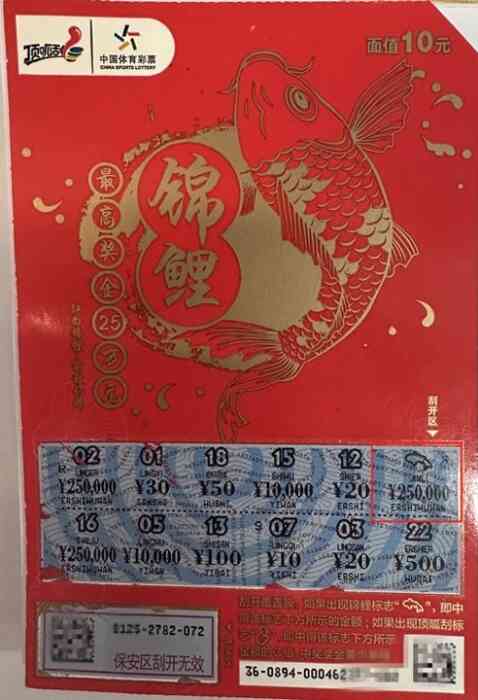 顶呱刮
中国体育彩票
CHINA SPORTS LOTTERY
面值10元
锦鲤
最高奖金25万元
刮开区
02 01 18 15 12
LINGER LINGYI SHIBA SHIWU SHIER JINLI
¥250,000 ¥30 ¥50 ¥10,000 ¥20 ¥250,000
ERSHIWUWAN SANSHI WUSHI YIWAN ERSHI ERSHIWUWAN
16 05 13 07 03 22
SHILIU LINGWU SHISAN LINGQI LINGSAN ERSHIER
¥250,000 ¥10,000 ¥100 ¥10 ¥20 ¥500
ERSHIWUWAN YIWAN YIBAI YISHI ERSHI WUBAI
刮开覆盖膜，如果出现锦鲤标志“ ”，即中
得该标志下方所示的金额；如果出现顶呱刮标
志“ ”，即中得该标志下方所示
8125-2782-072
保安区刮开无效
36-0894-000462